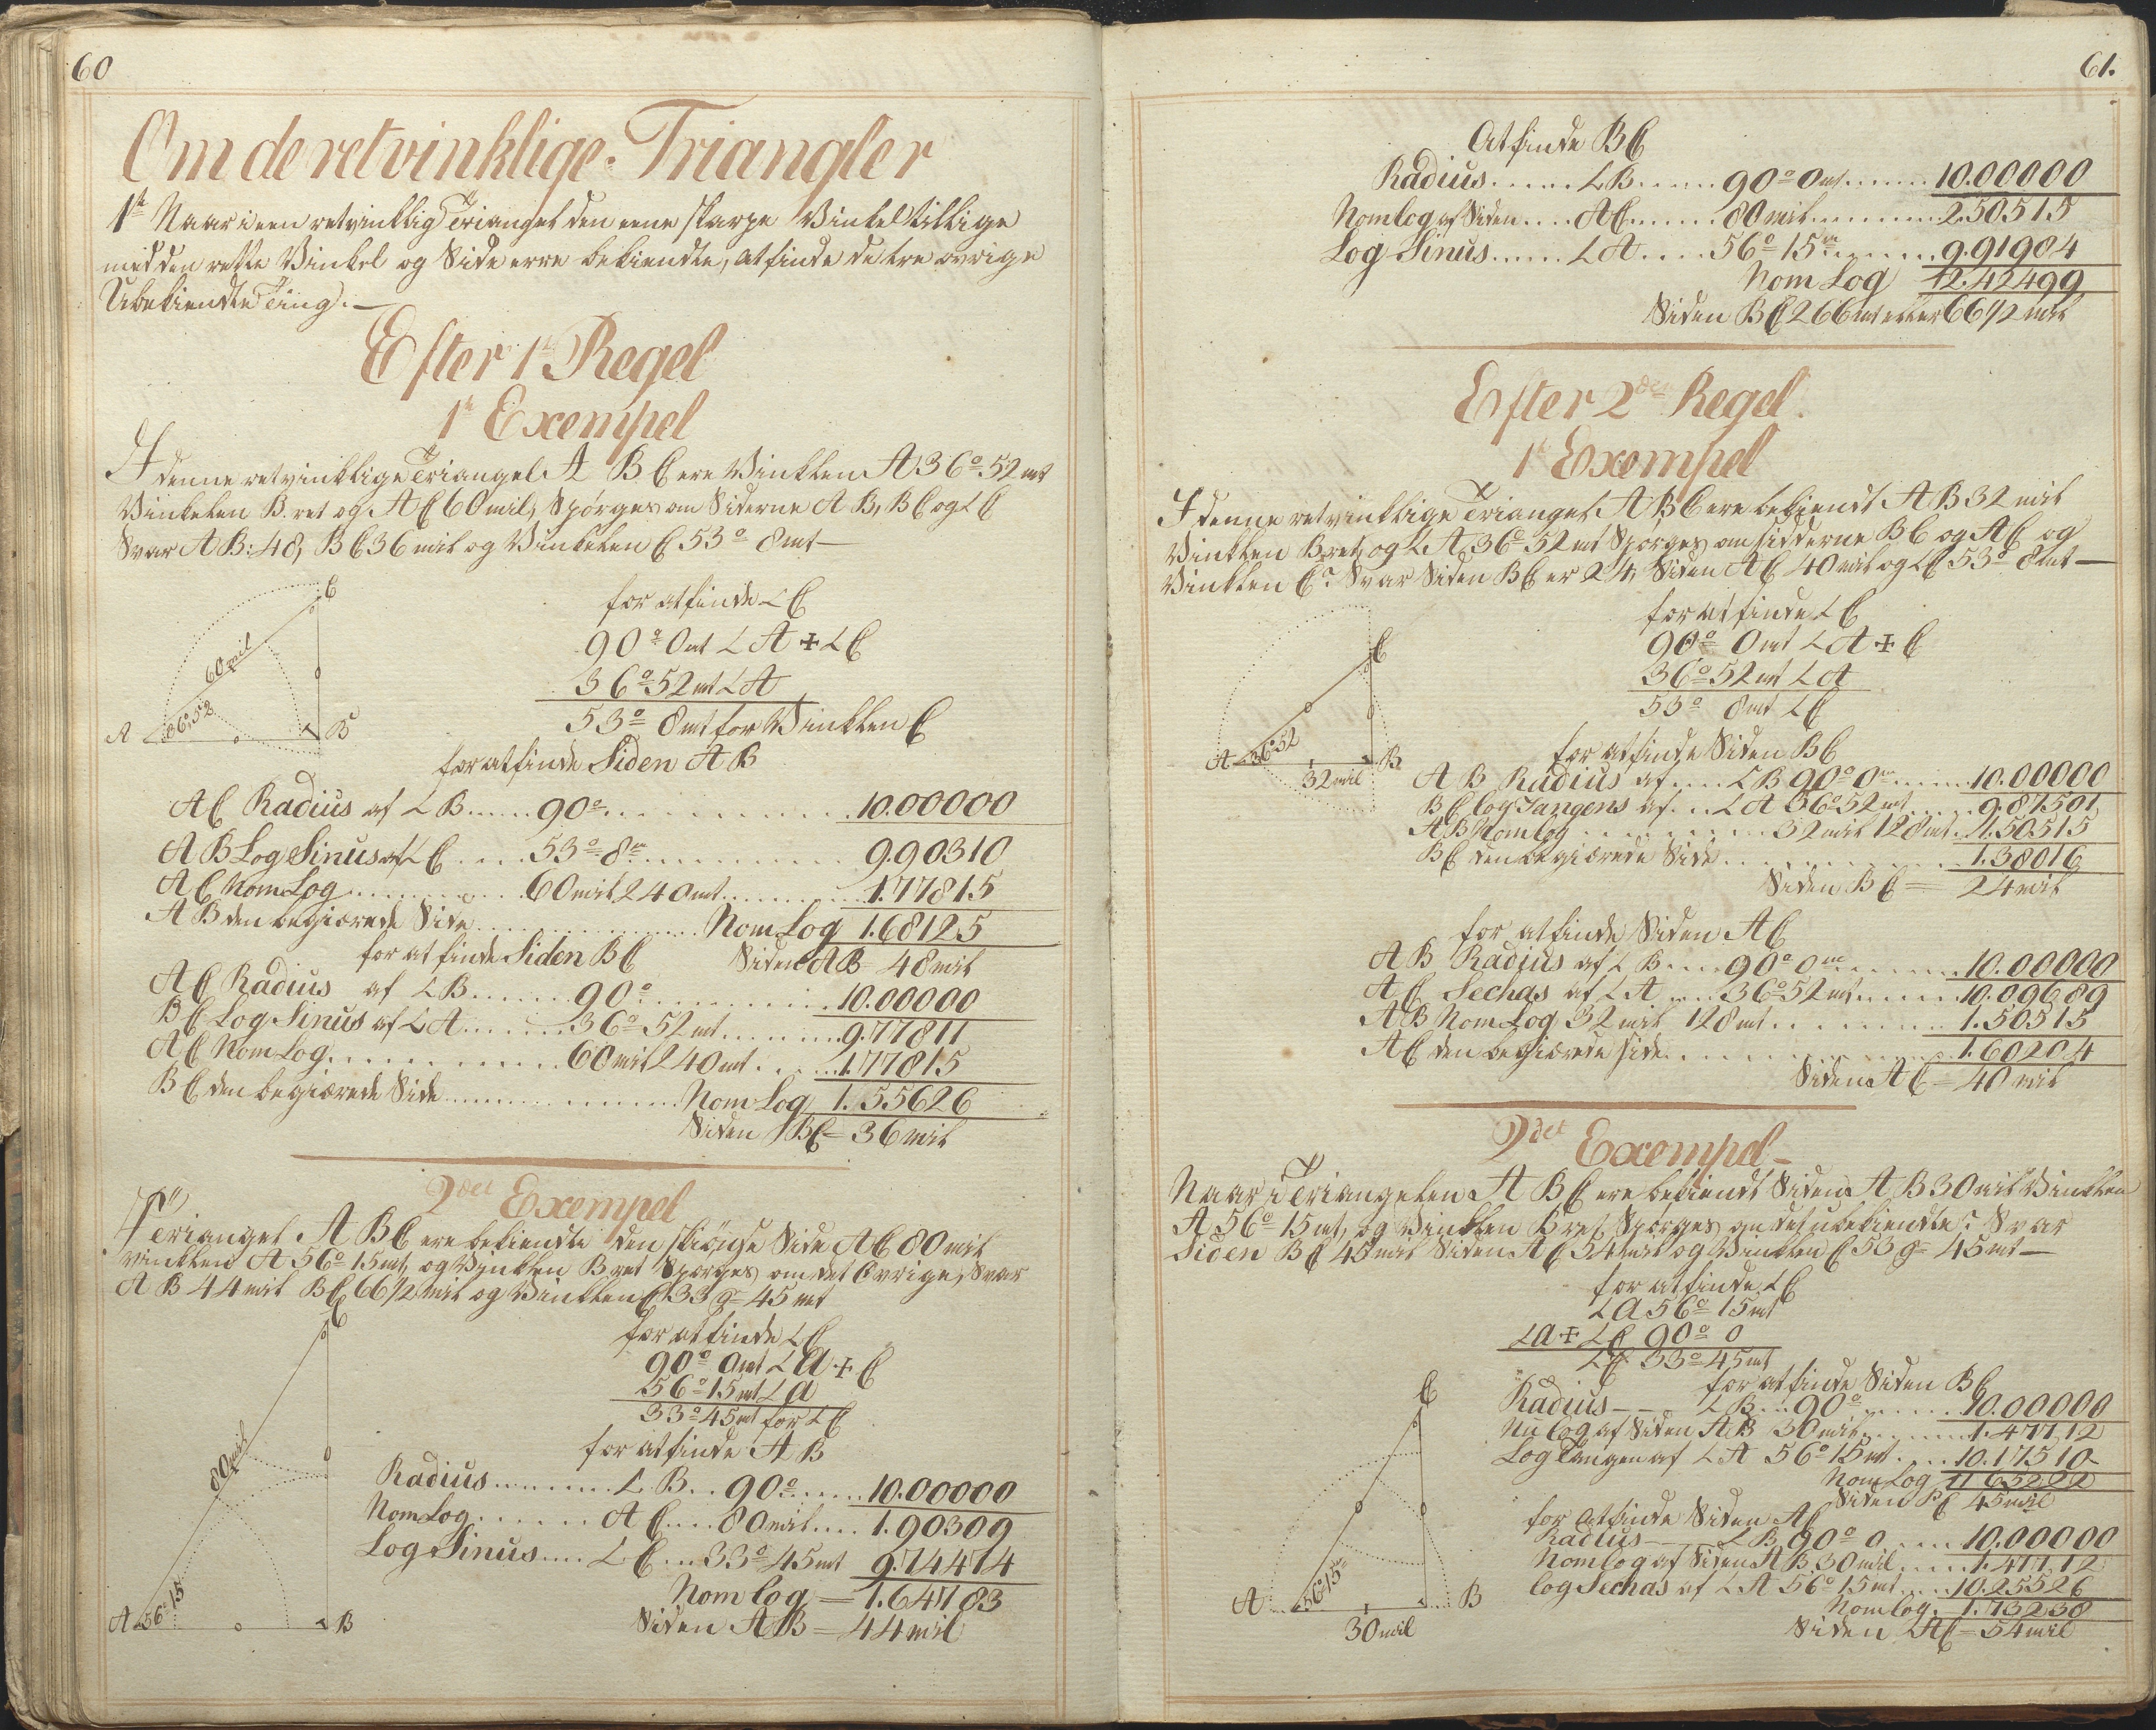 60
Om de retvinklige Triangler
1te Naar i een retvinklig Triangel den eene skarpe Vinkel tillige
med den rette Vinkel og Side erre bekiendte, at finde de tre øvrige
Ubekiendte Ting.—
Efter 1te Regel
1te Exempel
I denne retvinklige Triangel A B C ere Vinklen A 36° 52 mt
Vinkelen B. ret og AC 60 mil, Spørges om Siderne AB, BC og ∠C
Svar AB: 48, BC 36 mil og Vinkelen C 53° 8 mt—
C
60 mil
36°.52
A
B
for at finde ∠C
90° 0 mt ∠A + ∠C
36° 52 mt ∠A
53° 8 mt for Vinklen C
for at finde Siden AB
AC Radius af ∠B......90°..............10.00000
AB Log Sinus af ∠C.....53° 8m............9.90310
AC Nom Log............60 mil 240 mt..........1.77815
AB den begiærede Side................Nom Log 1.68125
for at finde Siden BC Siden AB = 48 mil
AC Radius af ∠B.......90°............10.00000
BC Log Sinus af ∠A.......36° 52 mt.........9.77811
AC Nom Log............60 mil 240 mt......1.77815
BC den begiærede Side.................Nom Log 1.55626
Siden BC = 36 mil
2det Exempel
I Triangel A B C ere bekiendte den skiønse Side AC 80 mil
vinklen A 56° 15 mt, og Vinklen B ret Spørges om det Øvrige, Svar
AB 44 mil BC 66 1/2 mil og Vinklen C 33 g 45 mt
C
80 mil
56°15
A
B
for at finde ∠C
90° 0 mt ∠A + C
56° 15 mt ∠A
33° 45 mt for ∠C
for at finde AB
Radius.........∠B..90°......10.00000
Nom Log.......AC....80 mil....1.90309
Log Sinus....∠C...33° 45 mt 9.74474
Nom log = 1.64783
Siden AB = 44 mil
61.
At finde BC
Radius......∠B......90° 0 mt.......10.00000
Nom log af Siden....AC.......80 mil...........2.50515
Log Sinus......∠A....56° 15m.........9.91984
Nom Log 12.42499
Siden BC 266 mt eller 66 1/2 mil
Efter 2den Regel.
1te Exempel
I denne retvinklige Triangel A B C ere bekiendt AB 32 mil
Vinklen B ret, og ∠A 36° 52 mt Spørges om sidderne BC og AC og
Vinklen C? Svar Siden BC er 24, Siden AC 40 mil og ∠C 53° 8 mt—
C
36°52
A
B
32 mil
for at finde ∠C
90° 0 mt ∠A + C
36° 52 mt ∠A
53° 8 mt ∠C
for at finde Siden BC
AB Radius af....∠B 90° 0m.......10.00000
BC log Tangens af...∠A 36° 52 mt......9.87501
AB Nom log............32 mil 128 mt..1.50515
BC den begiærede Side..............1.38016
Siden BC = 24 mil
for at finde Siden AC
AB Radius af ∠B....90° 0m.........10.00000
AC Sechas af ∠A....36° 52 mt.......10.09689
AB Nom Log 32 mil 128 mt..........1.50515
AC den begiærede side..............1.60204
Siden AC = 40 mil
2det Exempel—
Naar i Triangelen A B C ere bekiendt Siden AB 30 mil Vinklen
A 56° 15 mt, og Vinklen B ret, Spørges om det ubekiendte? Svar
Siden BC 45 mil Siden AC 54 mil og Vinklen C 53 g 45 mt—
C
56°15m
A
B
30 mil
for at finde ∠C
∠a 56° 15 mt
∠a + ∠C 90° 0
∠C 33° 45 mt
for at finde Siden BC
Radius——∠B...90°......10.00000
Nu Log af Siden AB 30 mil.......1.47712
Log Tangen af ∠A 56° 15 mt.....10.17510-
Nom Log 11.65222
Siden BC 45 mil
for at finde Siden AC
Radius——∠B 90° 0.....10.00000
Nom log af Siden AB 30 mil.....1.47712
log Sechas af ∠A 56° 15 mt.....10.25526
Nom log. 1.73238
Siden AC = 54 mil